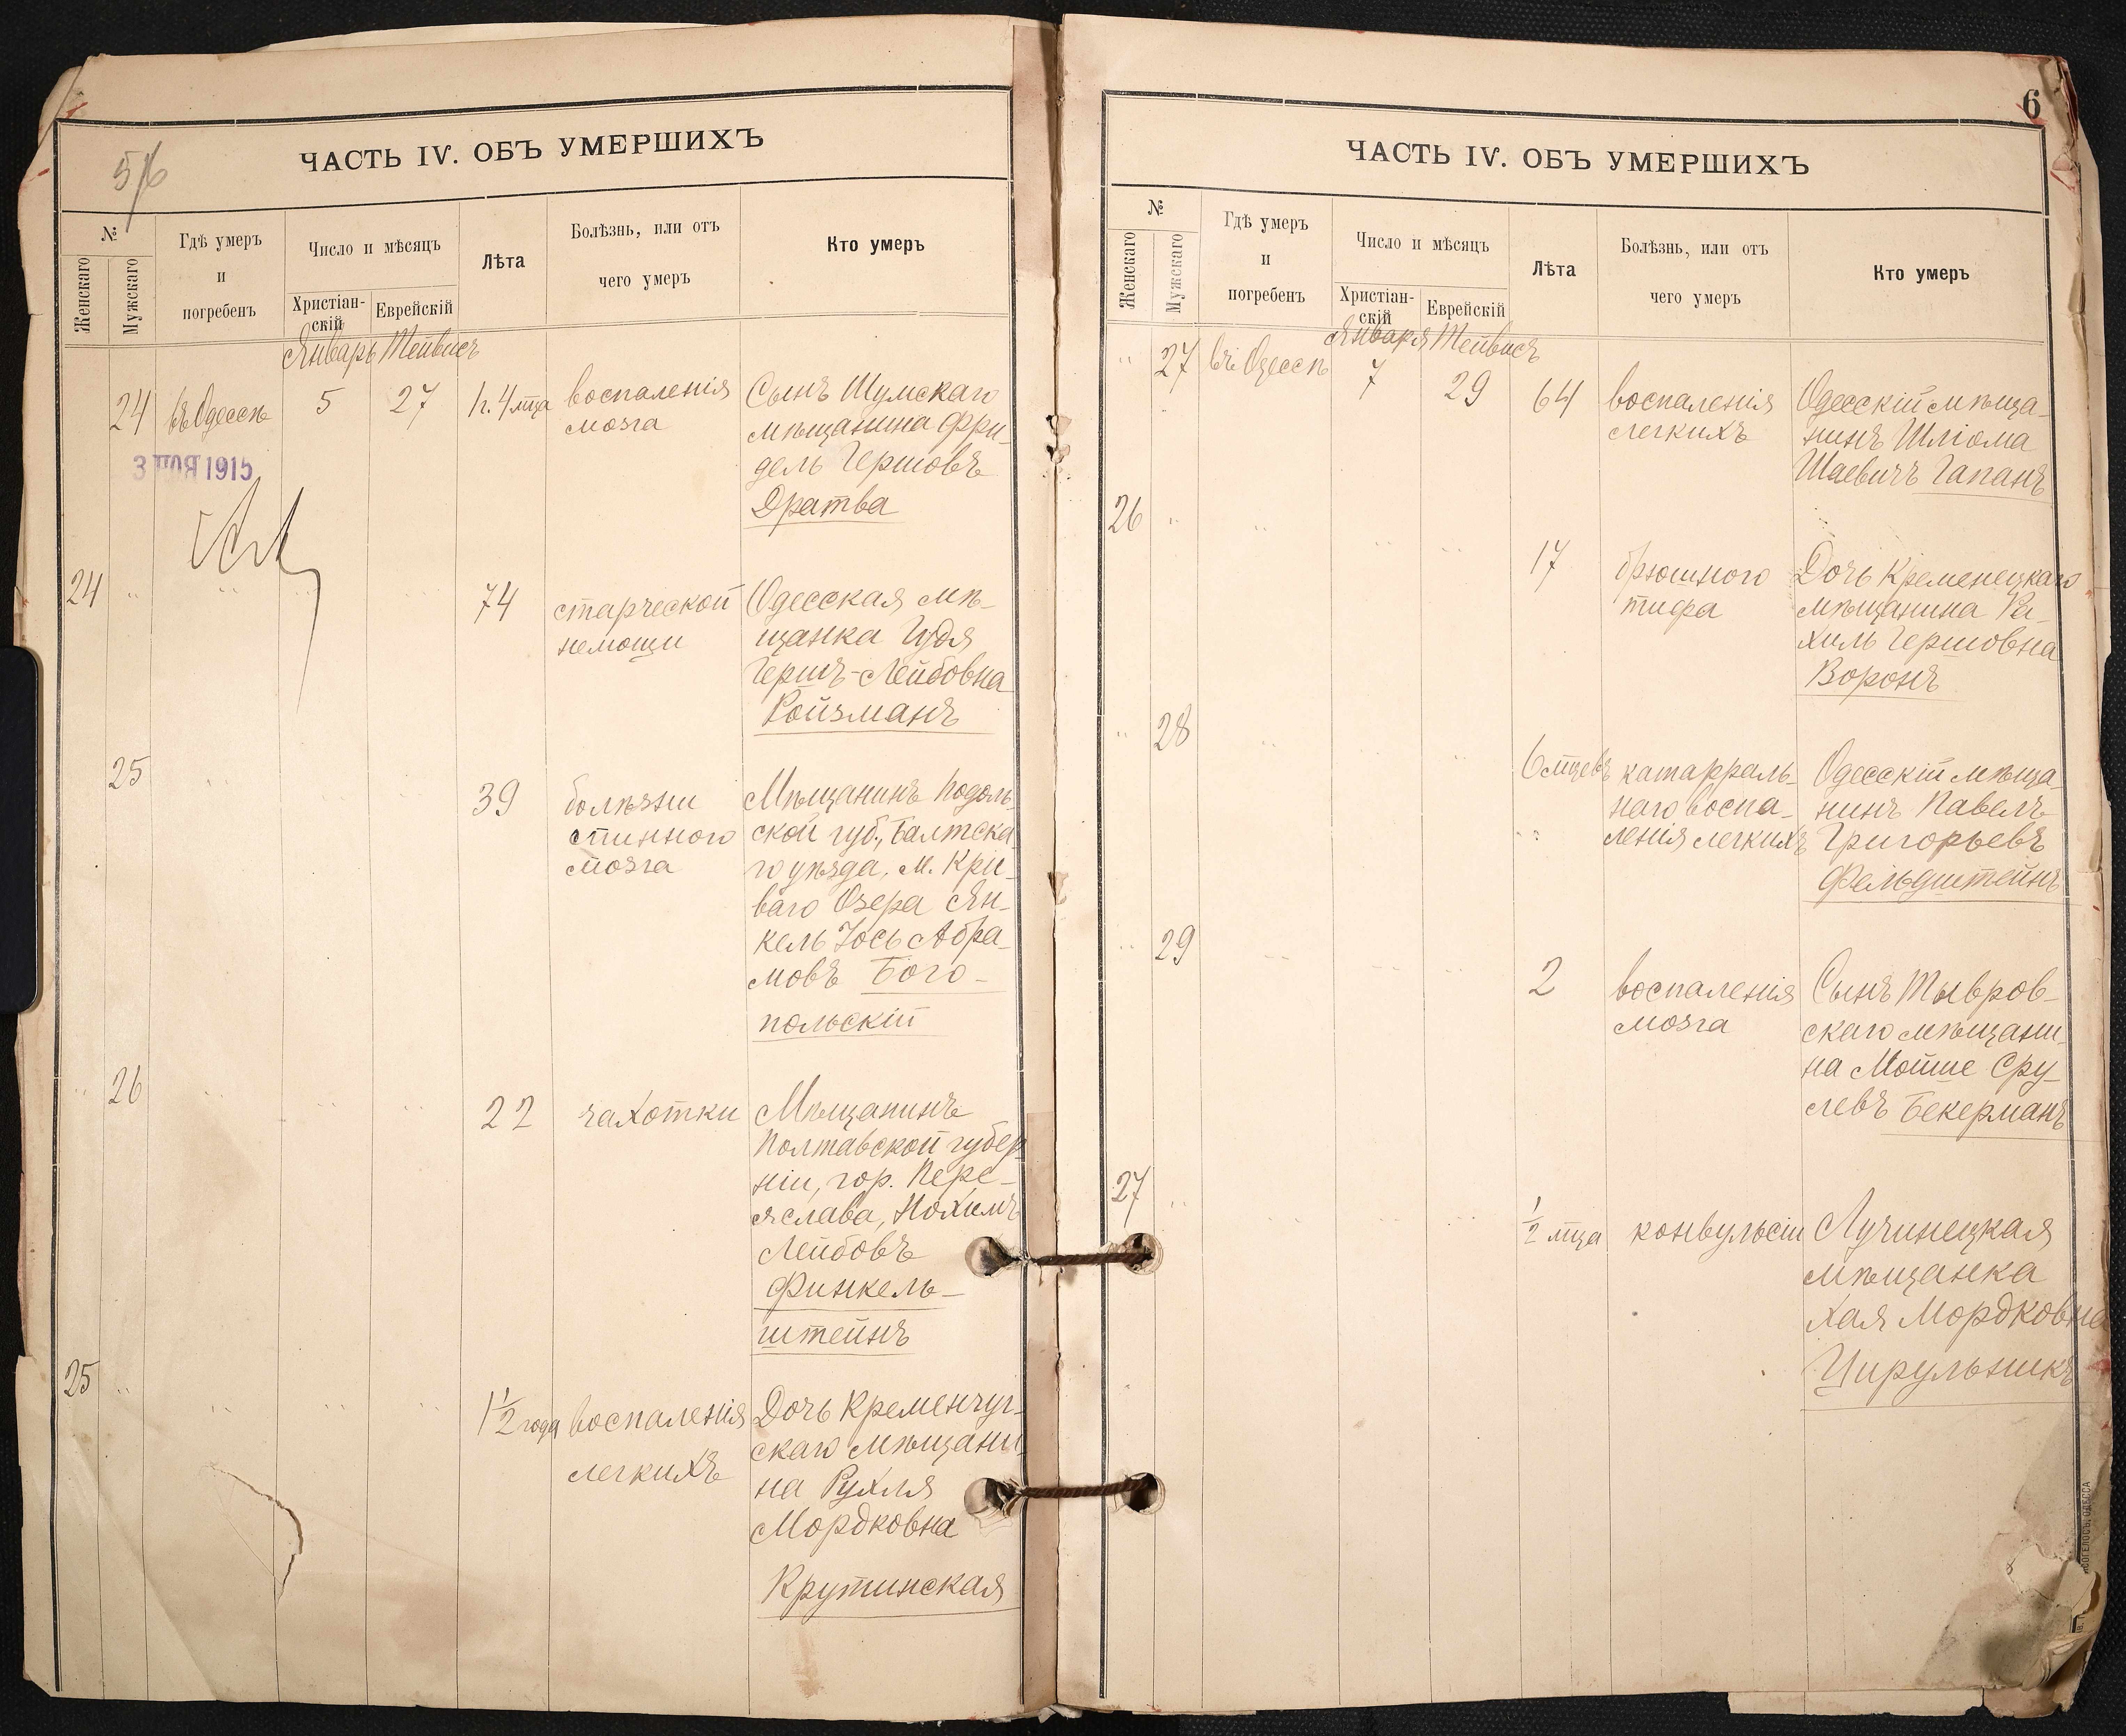 5/6
ЧАСТЬ IV. ОБЪ УМЕРШИХЪ
№
Женскаго
Мужскаго
Гдѣ умеръ
и
погребенъ
Число и мѣсяцъ
Христіан-
скій
Еврейскій
Лѣта
Болѣзнь, или отъ
чего умеръ
Кто умеръ
Январь Тейвисъ
24 въ Одессѣ 5 27 1 г. 4 м-ца воспаленія
мозга
Сынъ Шумскаго
мѣщанина Фри-
дель Гершовъ
Дратва
1915
24 " " 74 старческой
немощи
Одесская мѣ-
щанка Гудя
Гершъ-Лейбовна
Ройзманъ
25 39 болѣзни
спинного
мозга
Мѣщанинъ Подоль-
ской губ., Балтска-
го уѣзда, м. Кри-
ваго Озера Ян-
кель Іось Абра-
мовъ Бого-
польскій
" 26 22 чахотки
Мѣщанинъ
Полтавской губер-
ніи, гор. Пере-
яслава, Нохимъ
Лейбовъ
Финкель-
штейнъ
25 " 1½ года воспаленія
легкихъ
Дочь Кременчуг-
скаго мѣщани-
на Рухля
Мордковна
Крутинская
6
ЧАСТЬ IV. ОБЪ УМЕРШИХЪ
№
Женскаго
Мужскаго
Гдѣ умеръ
и
погребенъ
Число и мѣсяцъ
Христіан-
скій
Еврейскій
Лѣта
Болѣзнь, или отъ
чего умеръ
Кто умеръ
Января Тейвисъ
" 27 въ Одессѣ 7 29 64 воспаленія
легкихъ
Одесскій мѣща-
нинъ Шліома
Шаевичъ Гапанъ
26 " " 17 брюшного
тифа
Дочь Кременецкаго
мѣщанина Ра-
хиль Гершовна
Воронъ
" 28 6 м-цевъ катарраль-
наго воспа-
ленія легкихъ
Одесскій мѣща-
нинъ Павелъ
Григорьевъ
Фельдштейнъ
" 29 2 воспаленія
мозга
Сынъ Тывров-
скаго мѣщани-
на Мойше Сру-
левъ Бекерманъ
27 " ½ м-ца конвульсіи
Лучинецкая
мѣщанка
Хая Мордковна
Цирульникъ